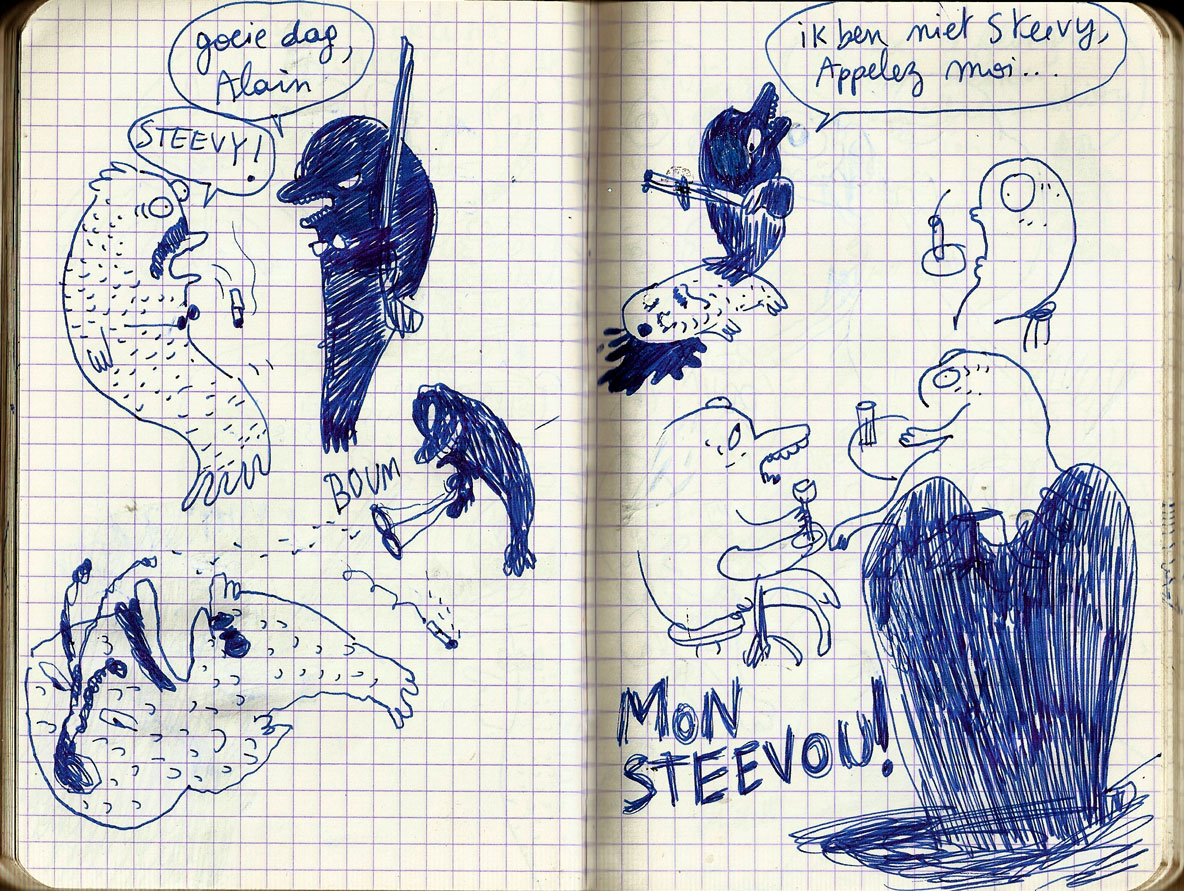 goeie dag,
Alain
STEEVY!
BOUM
ik ben niet Steevy,
Appelez moi...
MON
STEEVON!